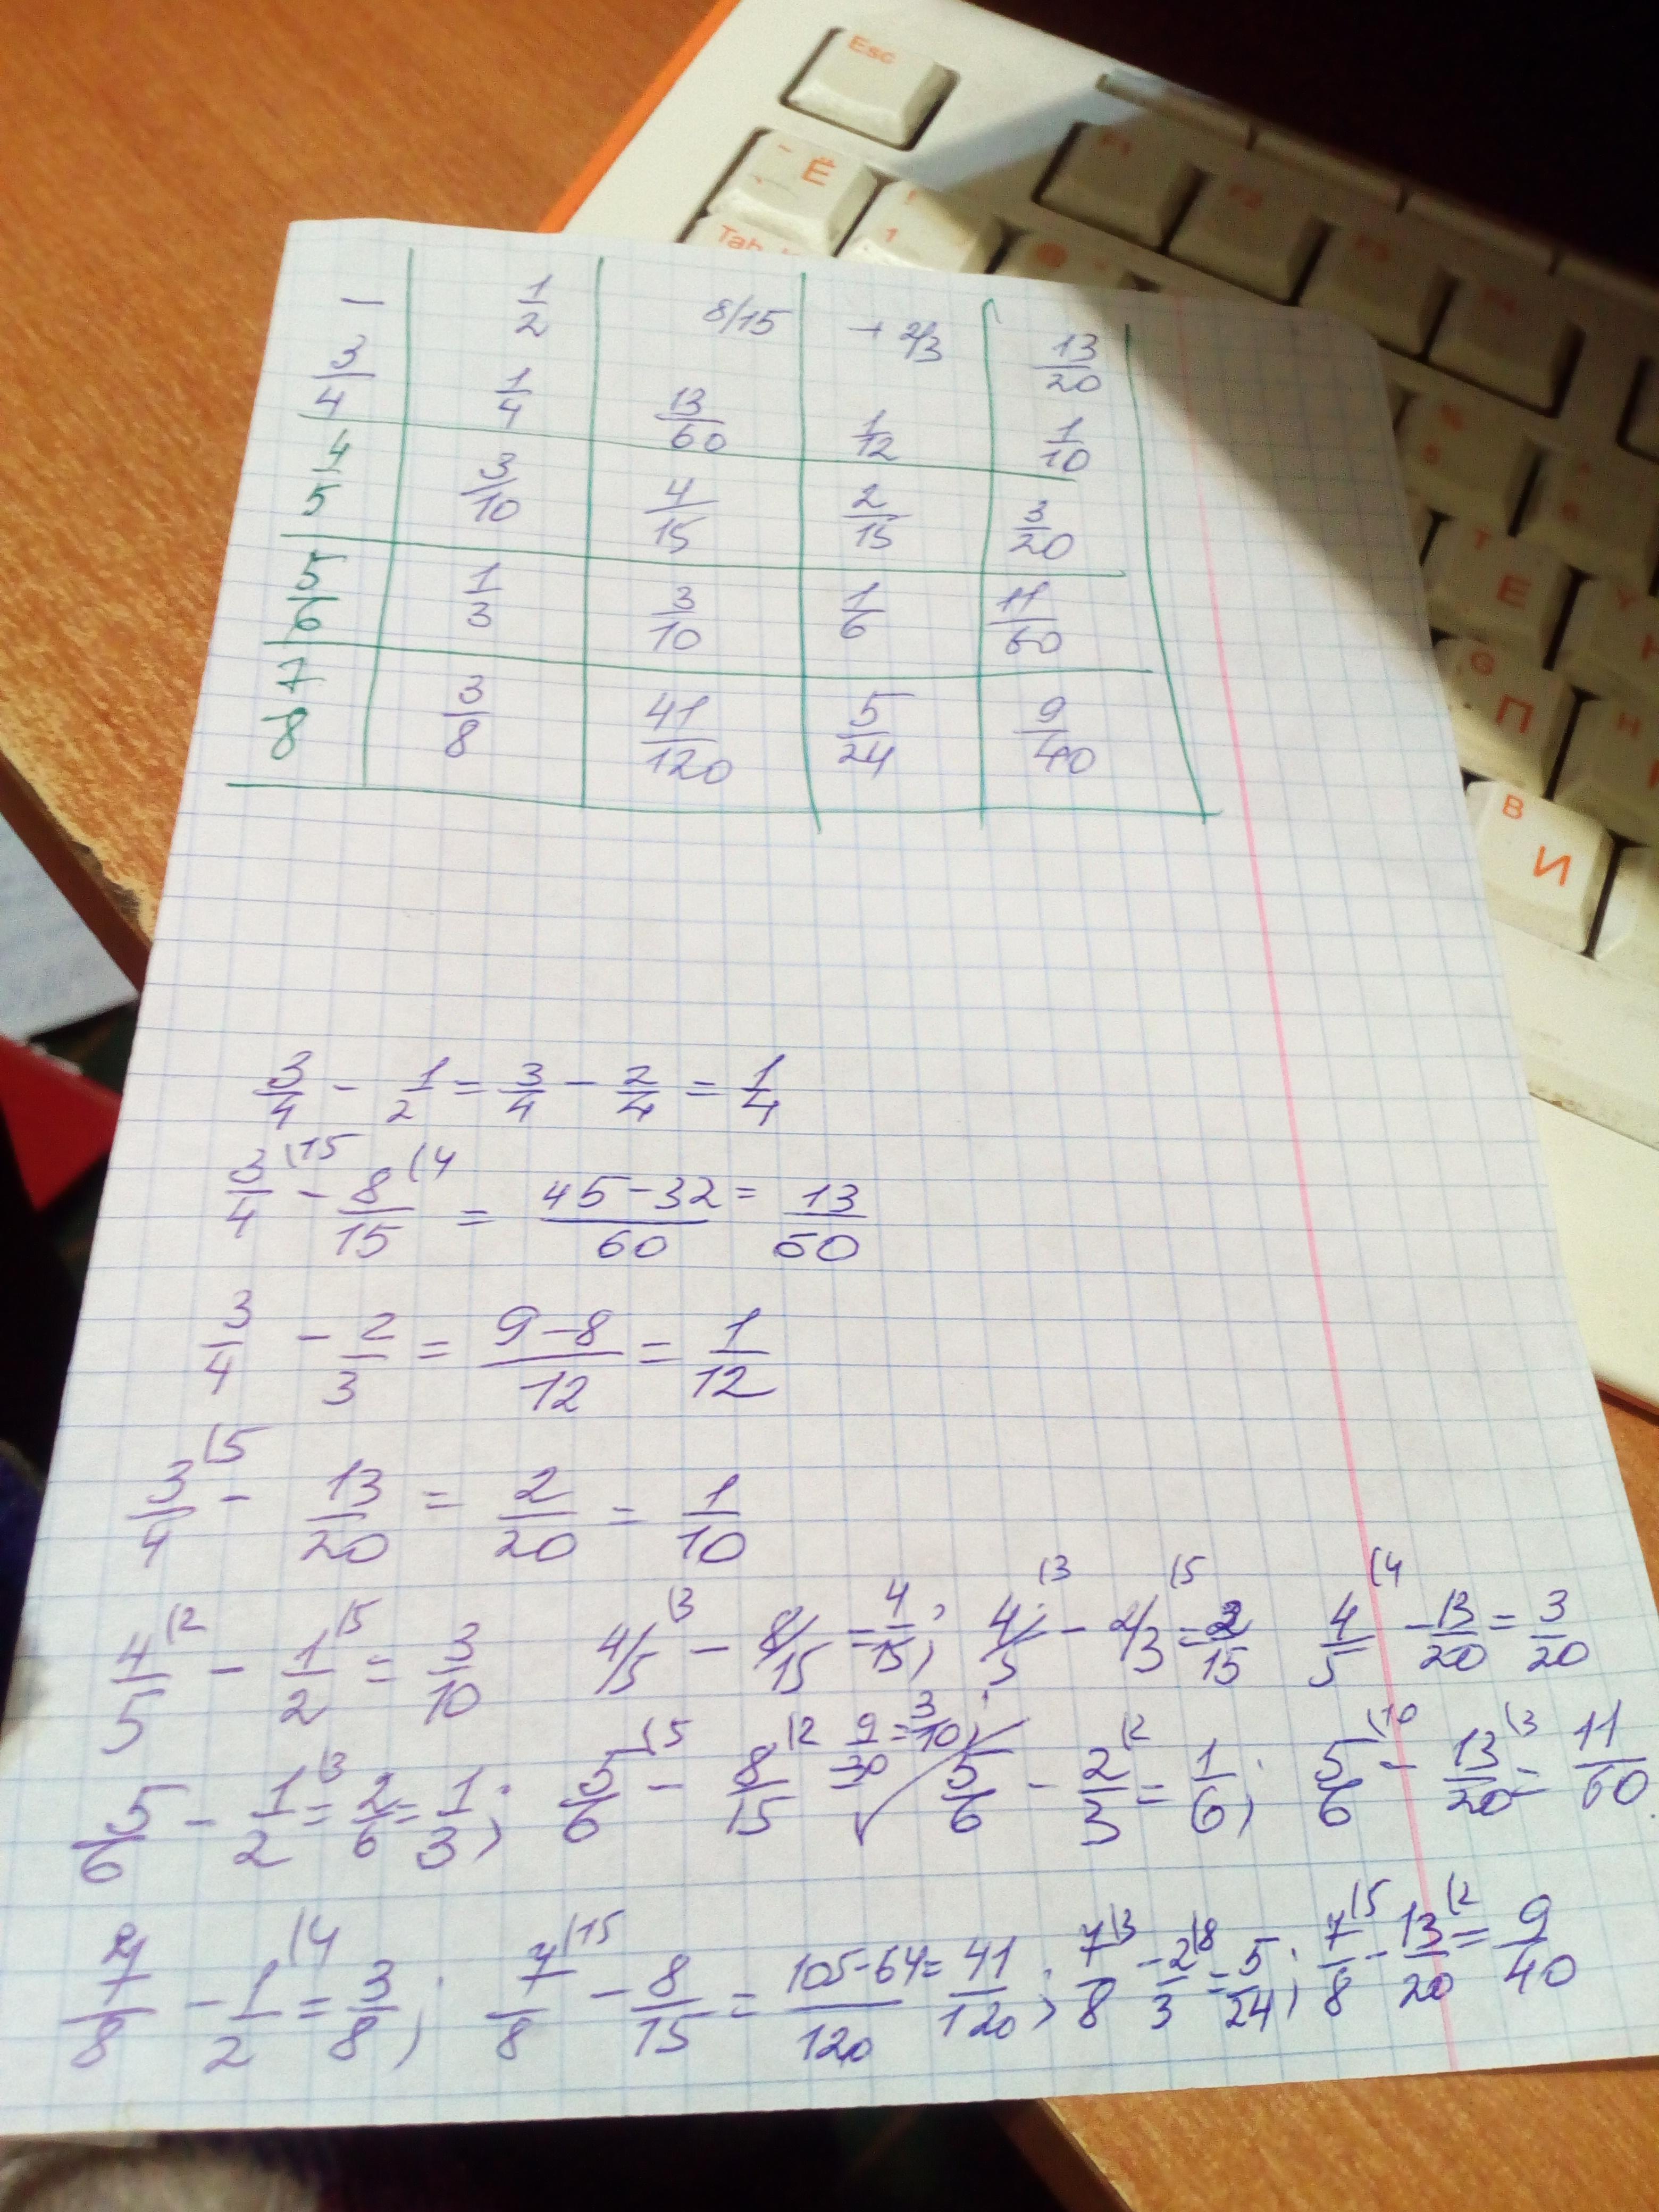 Esc
~ Ё
! 1
Tab
F1 F2 F3 F4
− 1/2 8/15 + 2/3 13/20
3/4 1/4 13/60 1/12 1/10
4/5 3/10 4/15 2/15 3/20
5/6 1/3 3/10 1/6 11/60
7/8 3/8 41/120 5/24 9/40
5 6
T Е Y Н
G П H
B И
3/4 − 1/2 = 3/4 − 2/4 = 1/4
3/4 (15 − 8/15 (4 = 45−32/60 = 13/60
3/4 − 2/3 = 9−8/12 = 1/12
3/4 (5 − 13/20 = 2/20 = 1/10
4/5 (2 − 1/2 (5 = 3/10 4/5 (3 − 8/15 = 4/15; 4/5 (3 − 2/3 (5 = 2/15 4/5 (4 − 13/20 = 3/20
5/6 − 1/2 (3 = 2/6 = 1/3; 5/6 (5 − 8/15 (2 = 9/30 = 3/10; 5/6 − 2/3 (2 = 1/6; 5/6 (10 − 13/20 (3 = 11/60.
7/8 − 1/2 (4 = 3/8; 7/8 (15 − 8/15 = 105−64/120 = 41/120; 7/8 (3 − 2/3 (8 = 5/24; 7/8 (5 − 13/20 (2 = 9/40